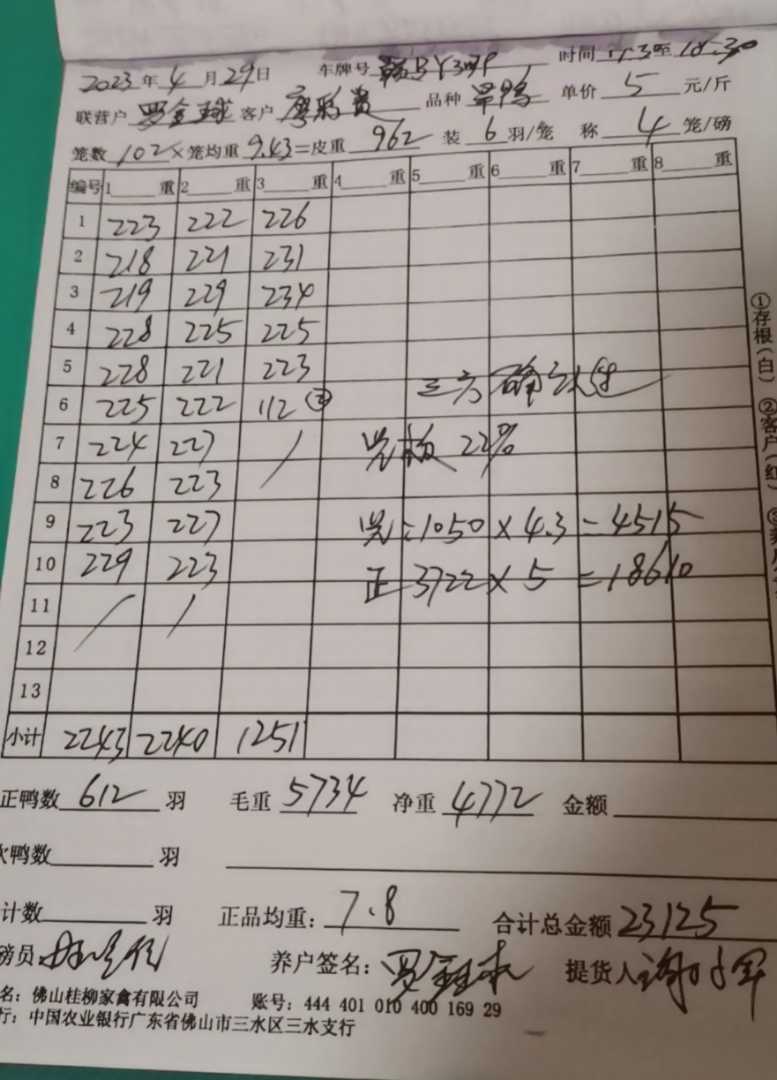 2023年4月29日 车牌号 时间 至18:30
联营户 罗金球 客户 品种 旱鸭 单价 5 元/斤
笼数 102 × 笼均重 9.43 = 皮重 962 装 6 羽/笼 称 4 笼/磅
编号 1 重 2 重 3 重 4 重 5 重 6 重 7 重 8 重
1 223 222 226
2 218 221 231
3 219 229 234
4 228 225 225
5 228 221 223
6 225 222 112 ②
三方确认
7 224 227 /
22%
8 226 223
9 223 227
:1050×4.3=4515
10 229 223
正 3722×5=18610
11 / /
12
13
小计 2243 2240 1251
正鸭数 612 羽 毛重 5734 净重 4772 金额
鸭数 羽
计数 羽 正品均重: 7.8 合计总金额 23125
磅员: 养户签名: 罗 提货人
名: 佛山桂柳家禽有限公司 账号: 444 401 010 400 169 29
行: 中国农业银行广东省佛山市三水区三水支行
①存根(白) ②客户(红)